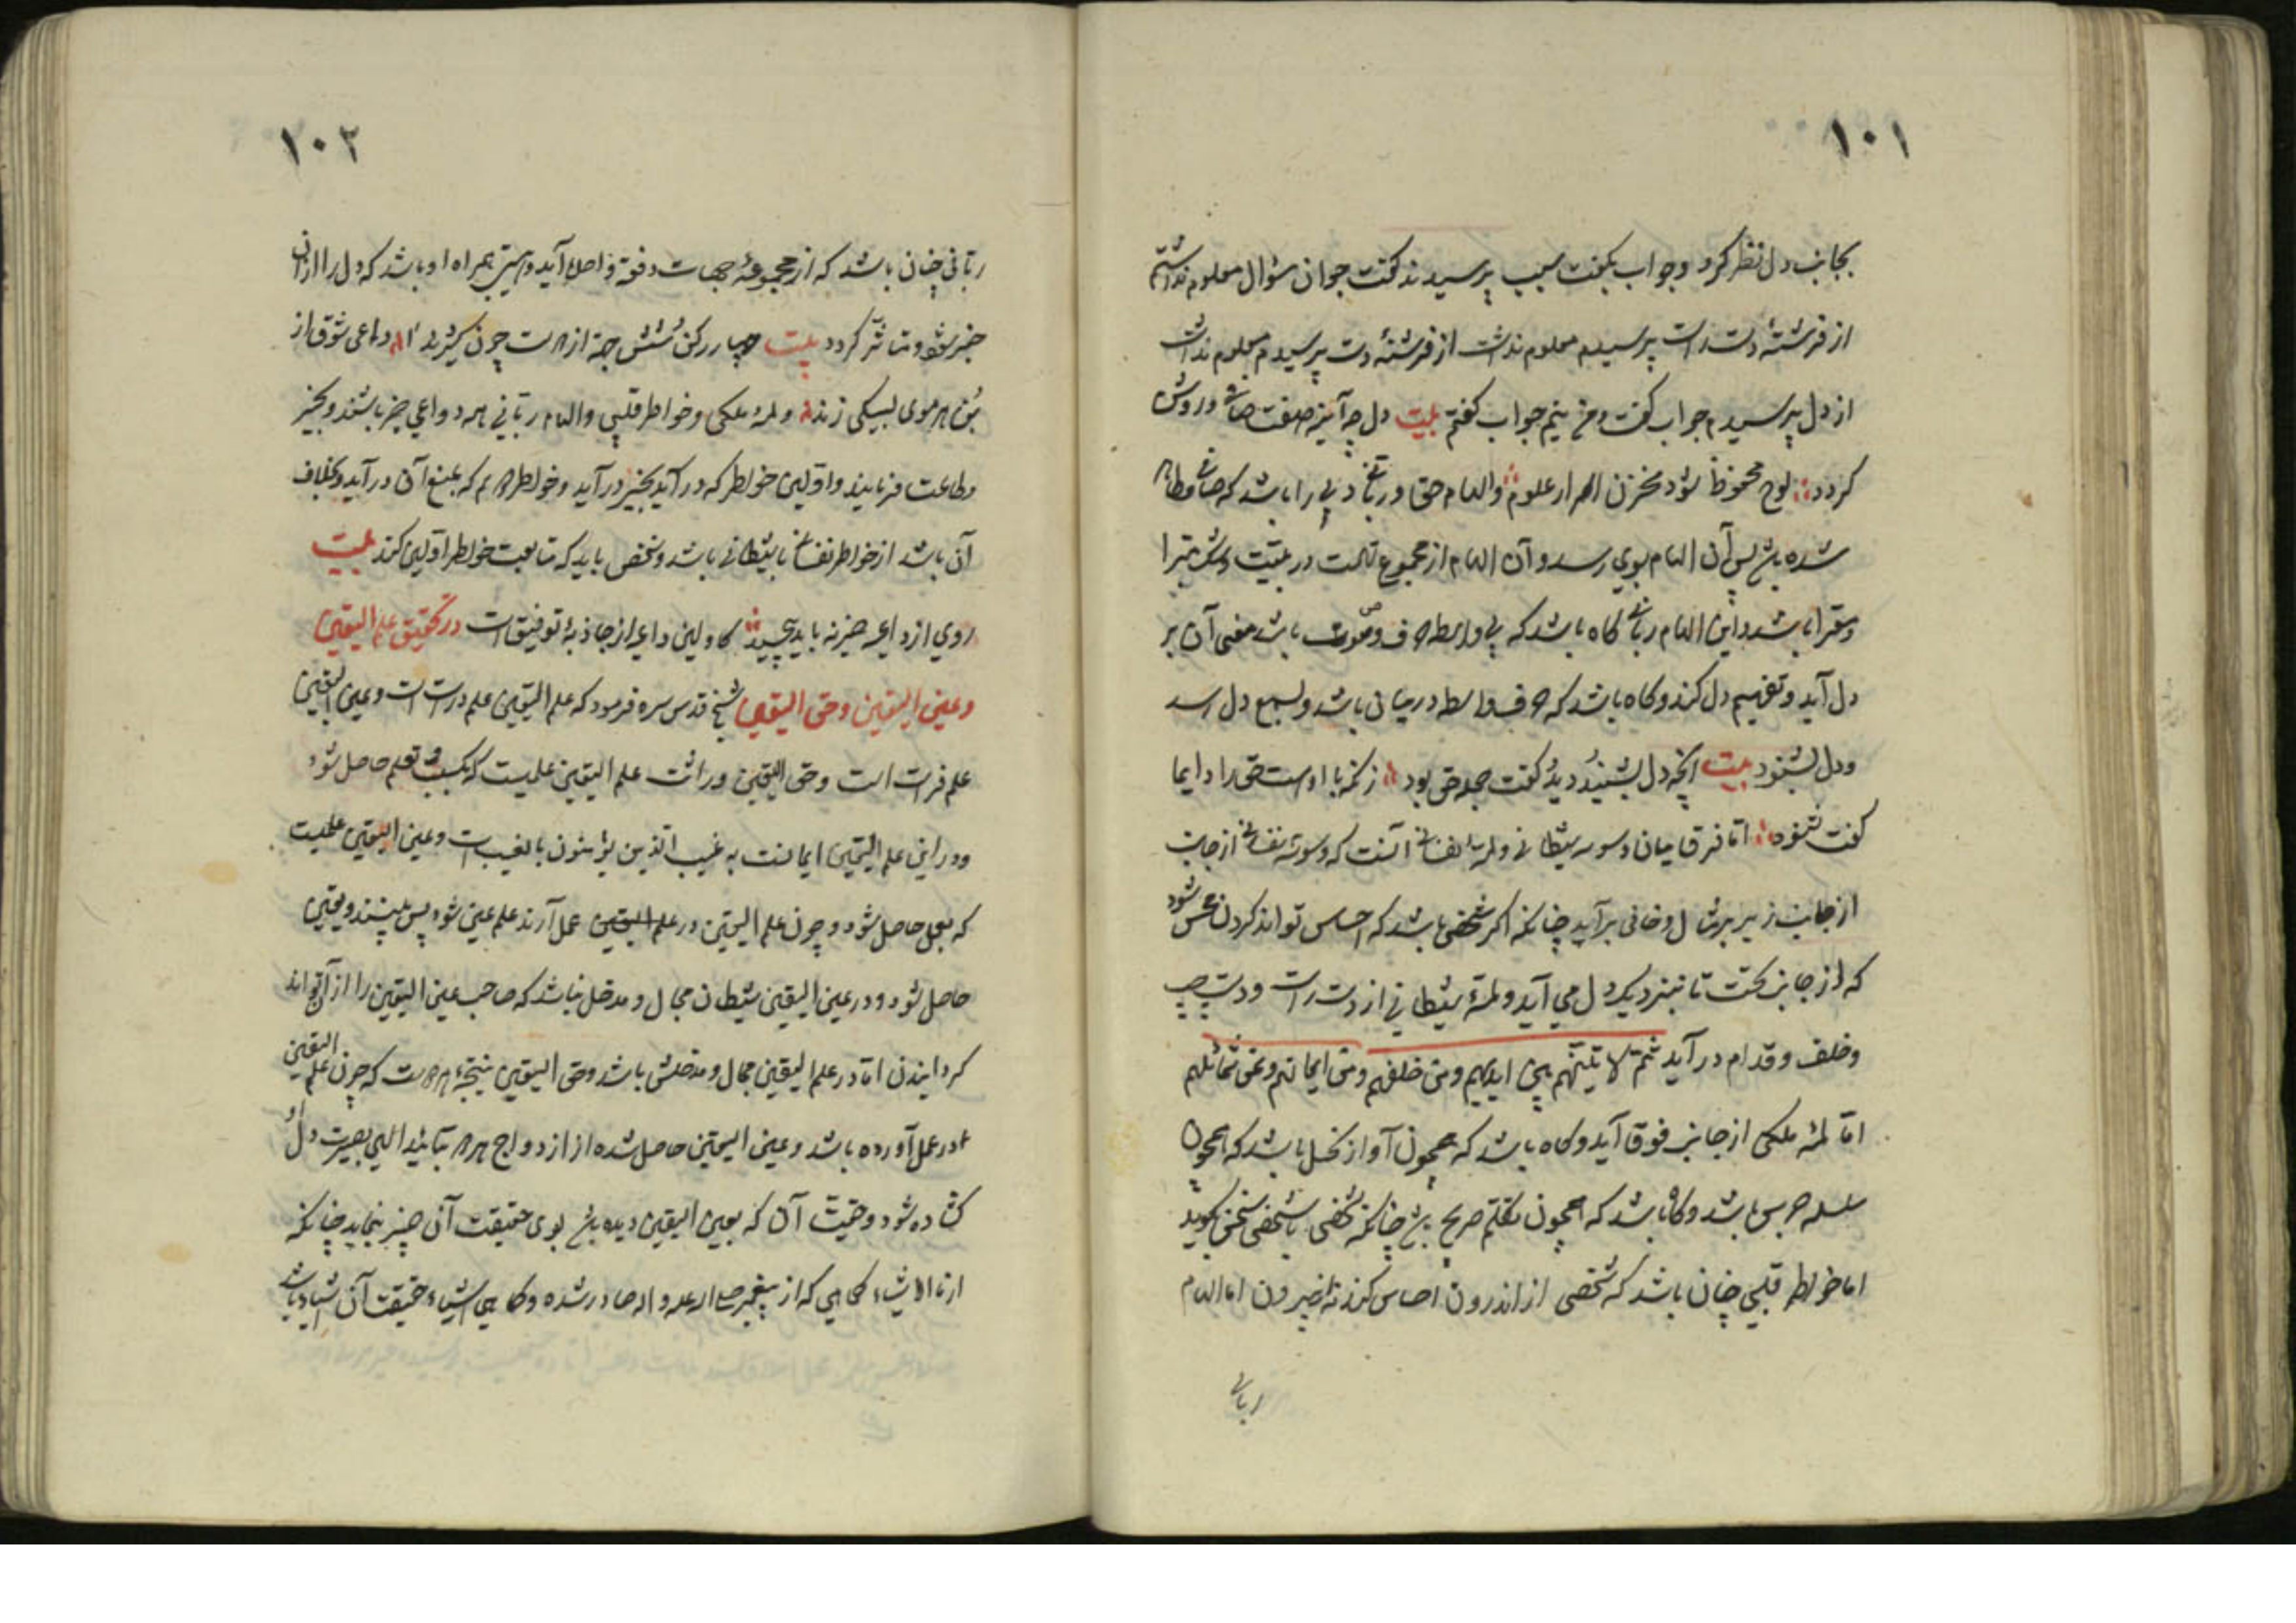 ١٠١
بجانب دل نظر کرد و جواب بگفت سبب پرسیدند گفت جوان سؤال معلوم نداشتم
از فرشتهٔ دست راست پرسیدم معلوم نداشت از فرشتهٔ دست پرسیدم معلوم نداشت
از دل پرسیدم جواب گفت و من نیم جواب گفتم بیت دل چه آینه صفت صافی و روشن
کردد لوح محفوظ شود مخزن اسرار علوم و الهام حق ربانی دلی را باشد که صافی و طاهر
شده باشد پس آن الهام بوی رسد و آن الهام از مجموع تهمت و ریبت و شک مبرا
و معرا باشد و این الهام ربانی گاه باشد که بی واسطه حرف و صوت باشد معنی آن بر
دل آید و تفهیم دل کند و گاه باشد که حرف واسطه در میان باشد و بسمع دل رسد
و دل بشنود بیت آنچه دل بشنید و دید گفت جمله حق بود زانکه با اوست حق را دایما
گفت شنود اما فرق میان وسوسه شیطانی و لمه نفسانی آنست که وسوسه نفسانی از جانب
از جانب زیر بر مثال دخانی برآید چنانکه اگر شخصی باشد که احساس تواند کردن محس شود
که از جانب تحت تا بنزدیک دل می آید و لمهٔ شیطانی از دست راست و دست چپ
و خلف و قدام در آید ثم لاتینهم من بین ایدیهم ومن خلفهم وعن ایمانهم وعن شمائلهم
اما لمهٔ ملکی از جانب فوق آید و گاه باشد که همچون آواز نحل باشد که همچون
سلسله جرس باشد و گاه باشد که همچون تکلم صریح باشد چنانکه شخصی با شخصی سخن گوید
اما خواطر قلبی چنان باشد که شخصی از اندرون احساس کند نه از بیرون اما الهام
ربانی
١٠٢
ربانی چنان باشد که از مجموعهٔ جهات دفعة واحدة آید و همراه او باشد که دل را از آن
خبر شود و متأثر گردد بیت چهار رکن شش جهة از هست چون داعی شوق از
بن هر موی لبیکی زند و لمهٔ ملکی و خواطر قلبی و الهام ربانی همه دواعی خیر باشند و بخیر
و طاعت فرمایند و اولین خواطر که در آید بخیر در آید و خواطر دوم که بمنع آن در آید و بخلاف
آن باشد از خواطر نفسانی یا شیطانی باشد و شخص باید که متابعت خواطر اولین کند بیت
روی از داعیه خیر نه باید پیچید کاولین داعیه از جاذبهٔ توفیق است در تحقیق علم الیقین
و عین الیقین و حق الیقین شیخ قدس سره فرمود که علم الیقین علم دراست است و عین الیقین
علم فراست است و حق الیقین وراثت علم الیقین علمیست که بکسب و تعلم حاصل شود
و در این علم الیقین ایمانست به غیب الذین یؤمنون بالغیب است و عین الیقین علمیست
که بعمل حاصل شود و چون علم الیقین در علم الیقین عمل آرند علم عین شود پس ببینند و یقین
حاصل شود و در عین الیقین شیطان مجال و مدخل نباشد که صاحب عین الیقین را از آن تواند
گردانیدن اما در علم الیقین مجال و مدخلش باشد و حق الیقین نتیجهٔ هر دوست که چون علم الیقین
در عمل آورده باشد و عین الیقین حاصل شده از ازدواج هر دو بتأیید الهی بصیرت دل او
گشاده شود و حقیقت آن که بعین الیقین دیده باشد بوی حقیقت آن چیز بنماید چنانکه
ارنا الاشیاء کما هی که از پیغمبر صلی الله علیه و اله صادر شده و کما هی اشیاء حقیقت آن اشیاء باشد